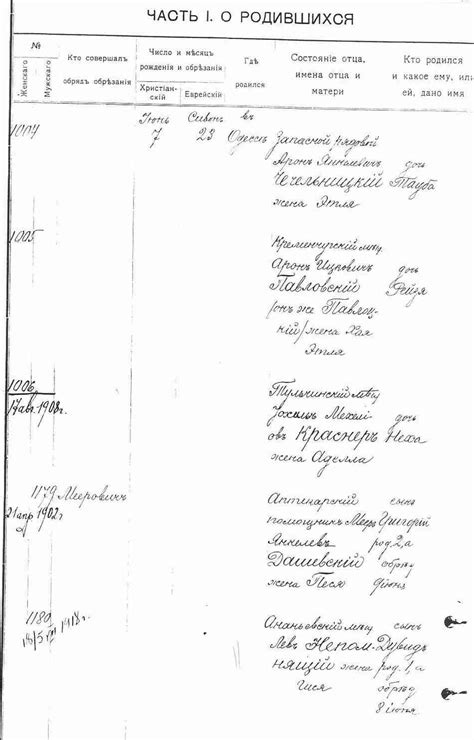 ЧАСТЬ I. О РОДИВШИХСЯ
№
Женскаго
Мужскаго
Кто совершалъ
обрядъ обрѣзанія
Число и мѣсяцъ
рожденія и обрѣзанія
Христіан-
скій
Еврейскій
Гдѣ
родился
Состояніе отца,
имена отца и
матери
Кто родился
и какое ему, или
ей, дано имя
1004
Іюнь
7
Сивонъ
23
въ
Одессѣ
Запасной рядовой
Аронъ Янкелевичъ дочь
Чечельницкій Тауба
жена Этля
1005
Кременчугскій мѣщ
Аронъ Ицковичъ дочь
Павловскій Рейзя
/онъ же Павлоц-
кій/ жена Хая
Этля
1006
17 авг. 1908 г.
Тульчинскій мѣщ
Іохилъ Мехеле- дочь
овъ Краснеръ Неха
жена Аделла
1179 Мееровичъ
21 апр 1902 г
Аптекарскій сынъ
помощникъ Меер Григорій
Янкелевъ род. 2, а
Дашевскій обрѣз
жена Песю 9 іюня
1180
1918 г.
Ананьевскій мѣщ сынъ
Левъ Непом- Дувидъ
нящій жена род. 1, а
Гися обрѣз
8 іюня